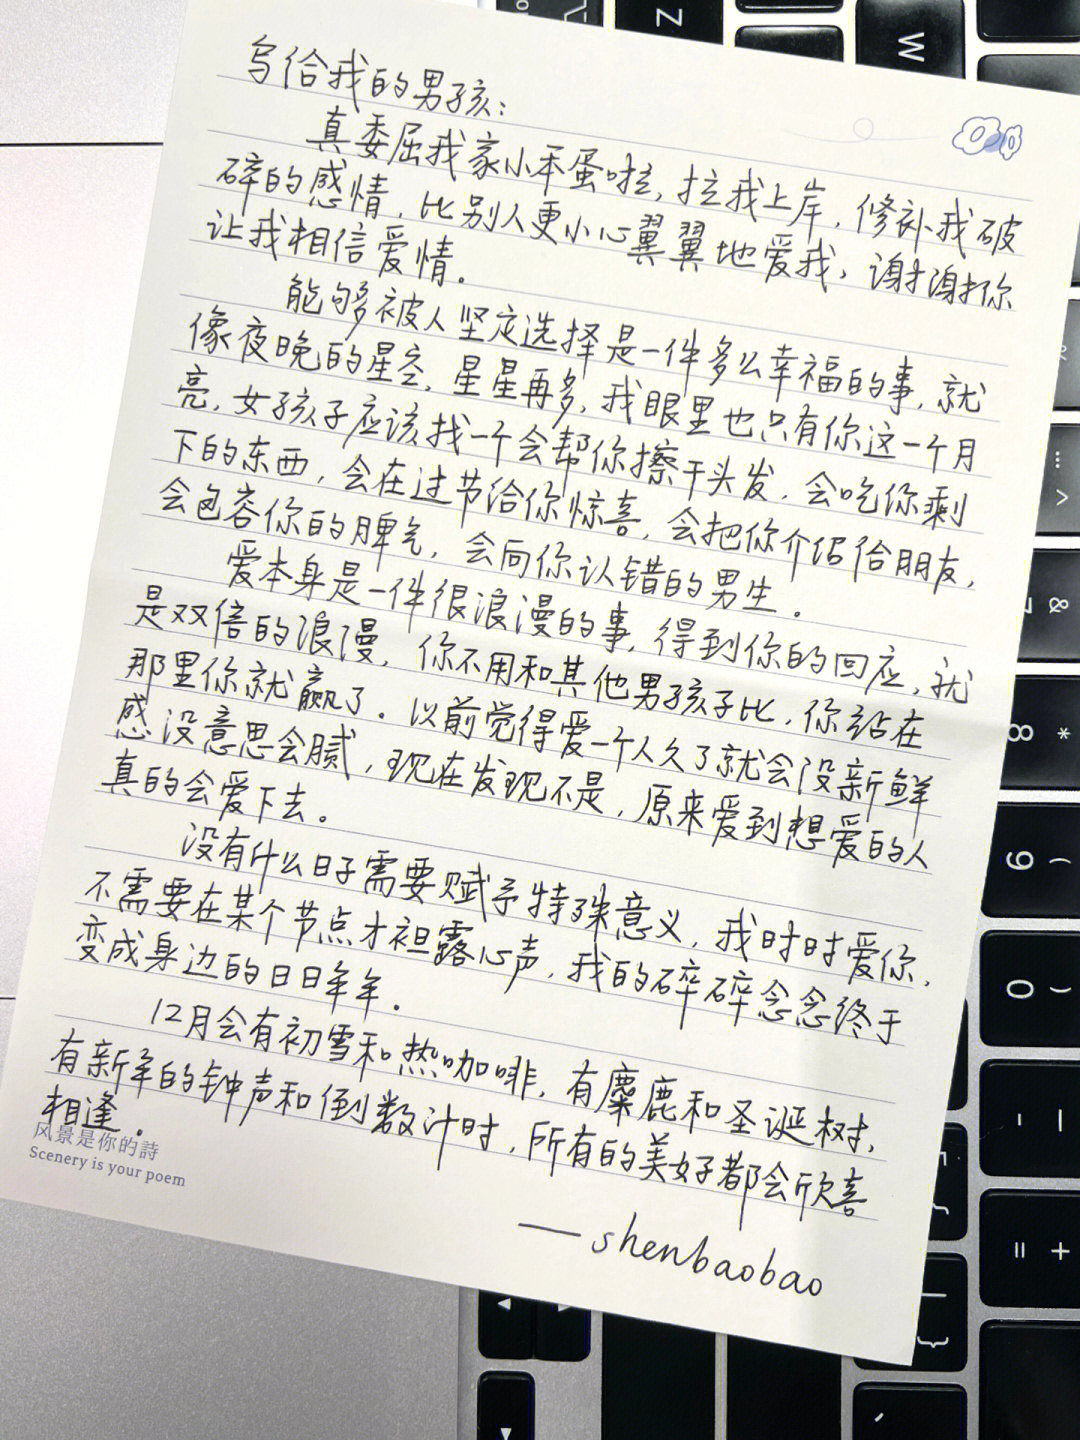 写给我的男孩:
真委屈我家小笨蛋啦, 拉我上岸, 修补我破
碎的感情, 比别人更小心翼翼地爱我, 谢谢你
让我相信爱情.
能够被人坚定选择是一件多么幸福的事, 就
像夜晚的星空, 星星再多, 我眼里也只有你这一个月
亮, 女孩子应该找一个会帮你擦干头发, 会吃你剩
下的东西, 会在过节给你惊喜, 会把你介绍给朋友,
会包容你的脾气, 会向你认错的男生.
爱本身是一件很浪漫的事, 得到你的回应, 就
是双倍的浪漫, 你不用和其他男孩子比, 你站在
那里你就赢了. 以前觉得爱一个人久了就会没新鲜
感没意思会腻, 现在发现不是, 原来爱到想爱的人
真的会爱下去.
没有什么日子需要赋予特殊意义, 我时时爱你,
不需要在某个节点才袒露心声, 我的碎碎念念终于
变成身边的日日年年.
12月会有初雪和热咖啡, 有麋鹿和圣诞树,
有新年的钟声和倒数计时, 所有的美好都会欣喜
相逢.
风景是你的詩
Scenery is your poem
——shenbaobao
W
Z
&
7
*
8
(
9
)
0
-
+
=
}